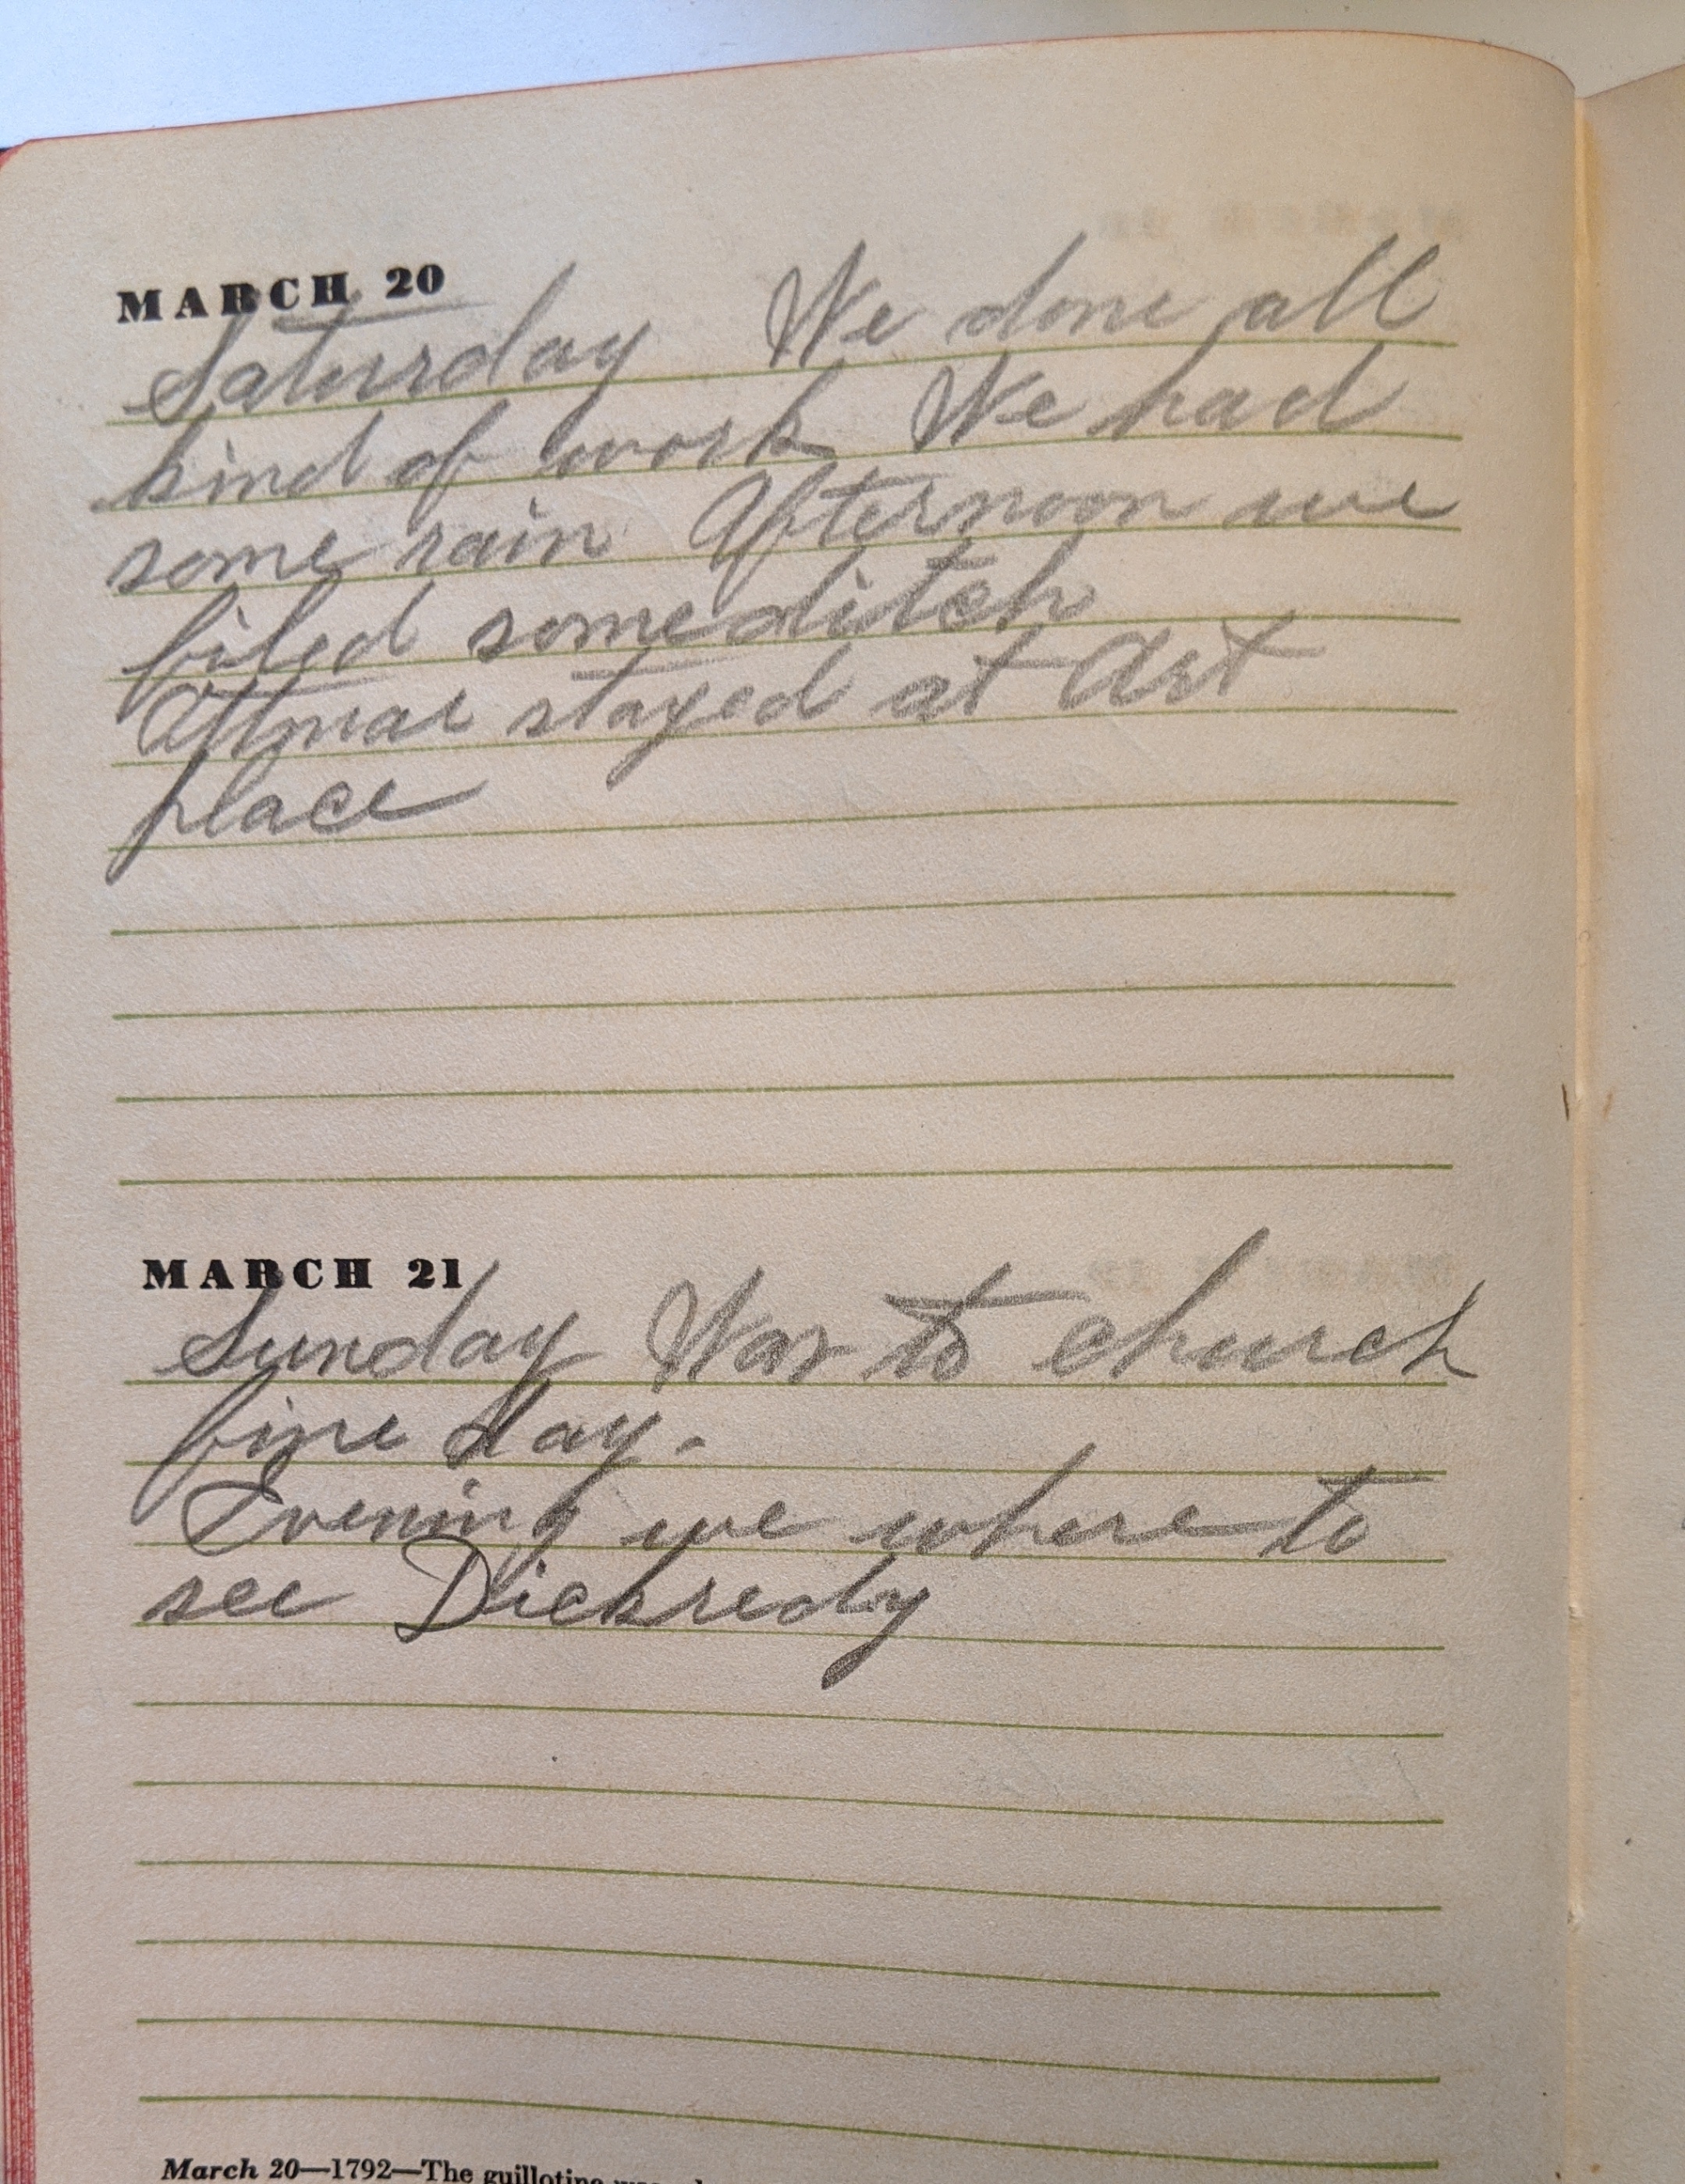 MARCH 20
Saturday We done all
kind of work We had
some rain Afternoon we
filed some ditch
stayed at Art
place
MARCH 21
Sunday War to church
fine day.
Evening we where to
see Dickredy
March 20—1792—The guillotine was